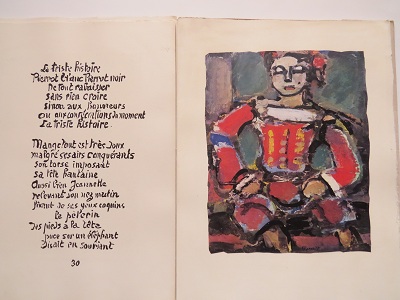 La triste histoire
Pierrot blanc Pierrot noir
De tout rabaisser
sans rien croire
sinon aux honneurs
ou aux consécrations du moment
La triste histoire
Mange tout est très doux
malgré ses airs conquérants
son torse imposant
sa tête hautaine
Aussi bien Jeannette
relevant son nez mutin
fixant de ses yeux coquins
le pèlerin
des pieds à la tête
puce sur un éléphant
disait en souriant
30